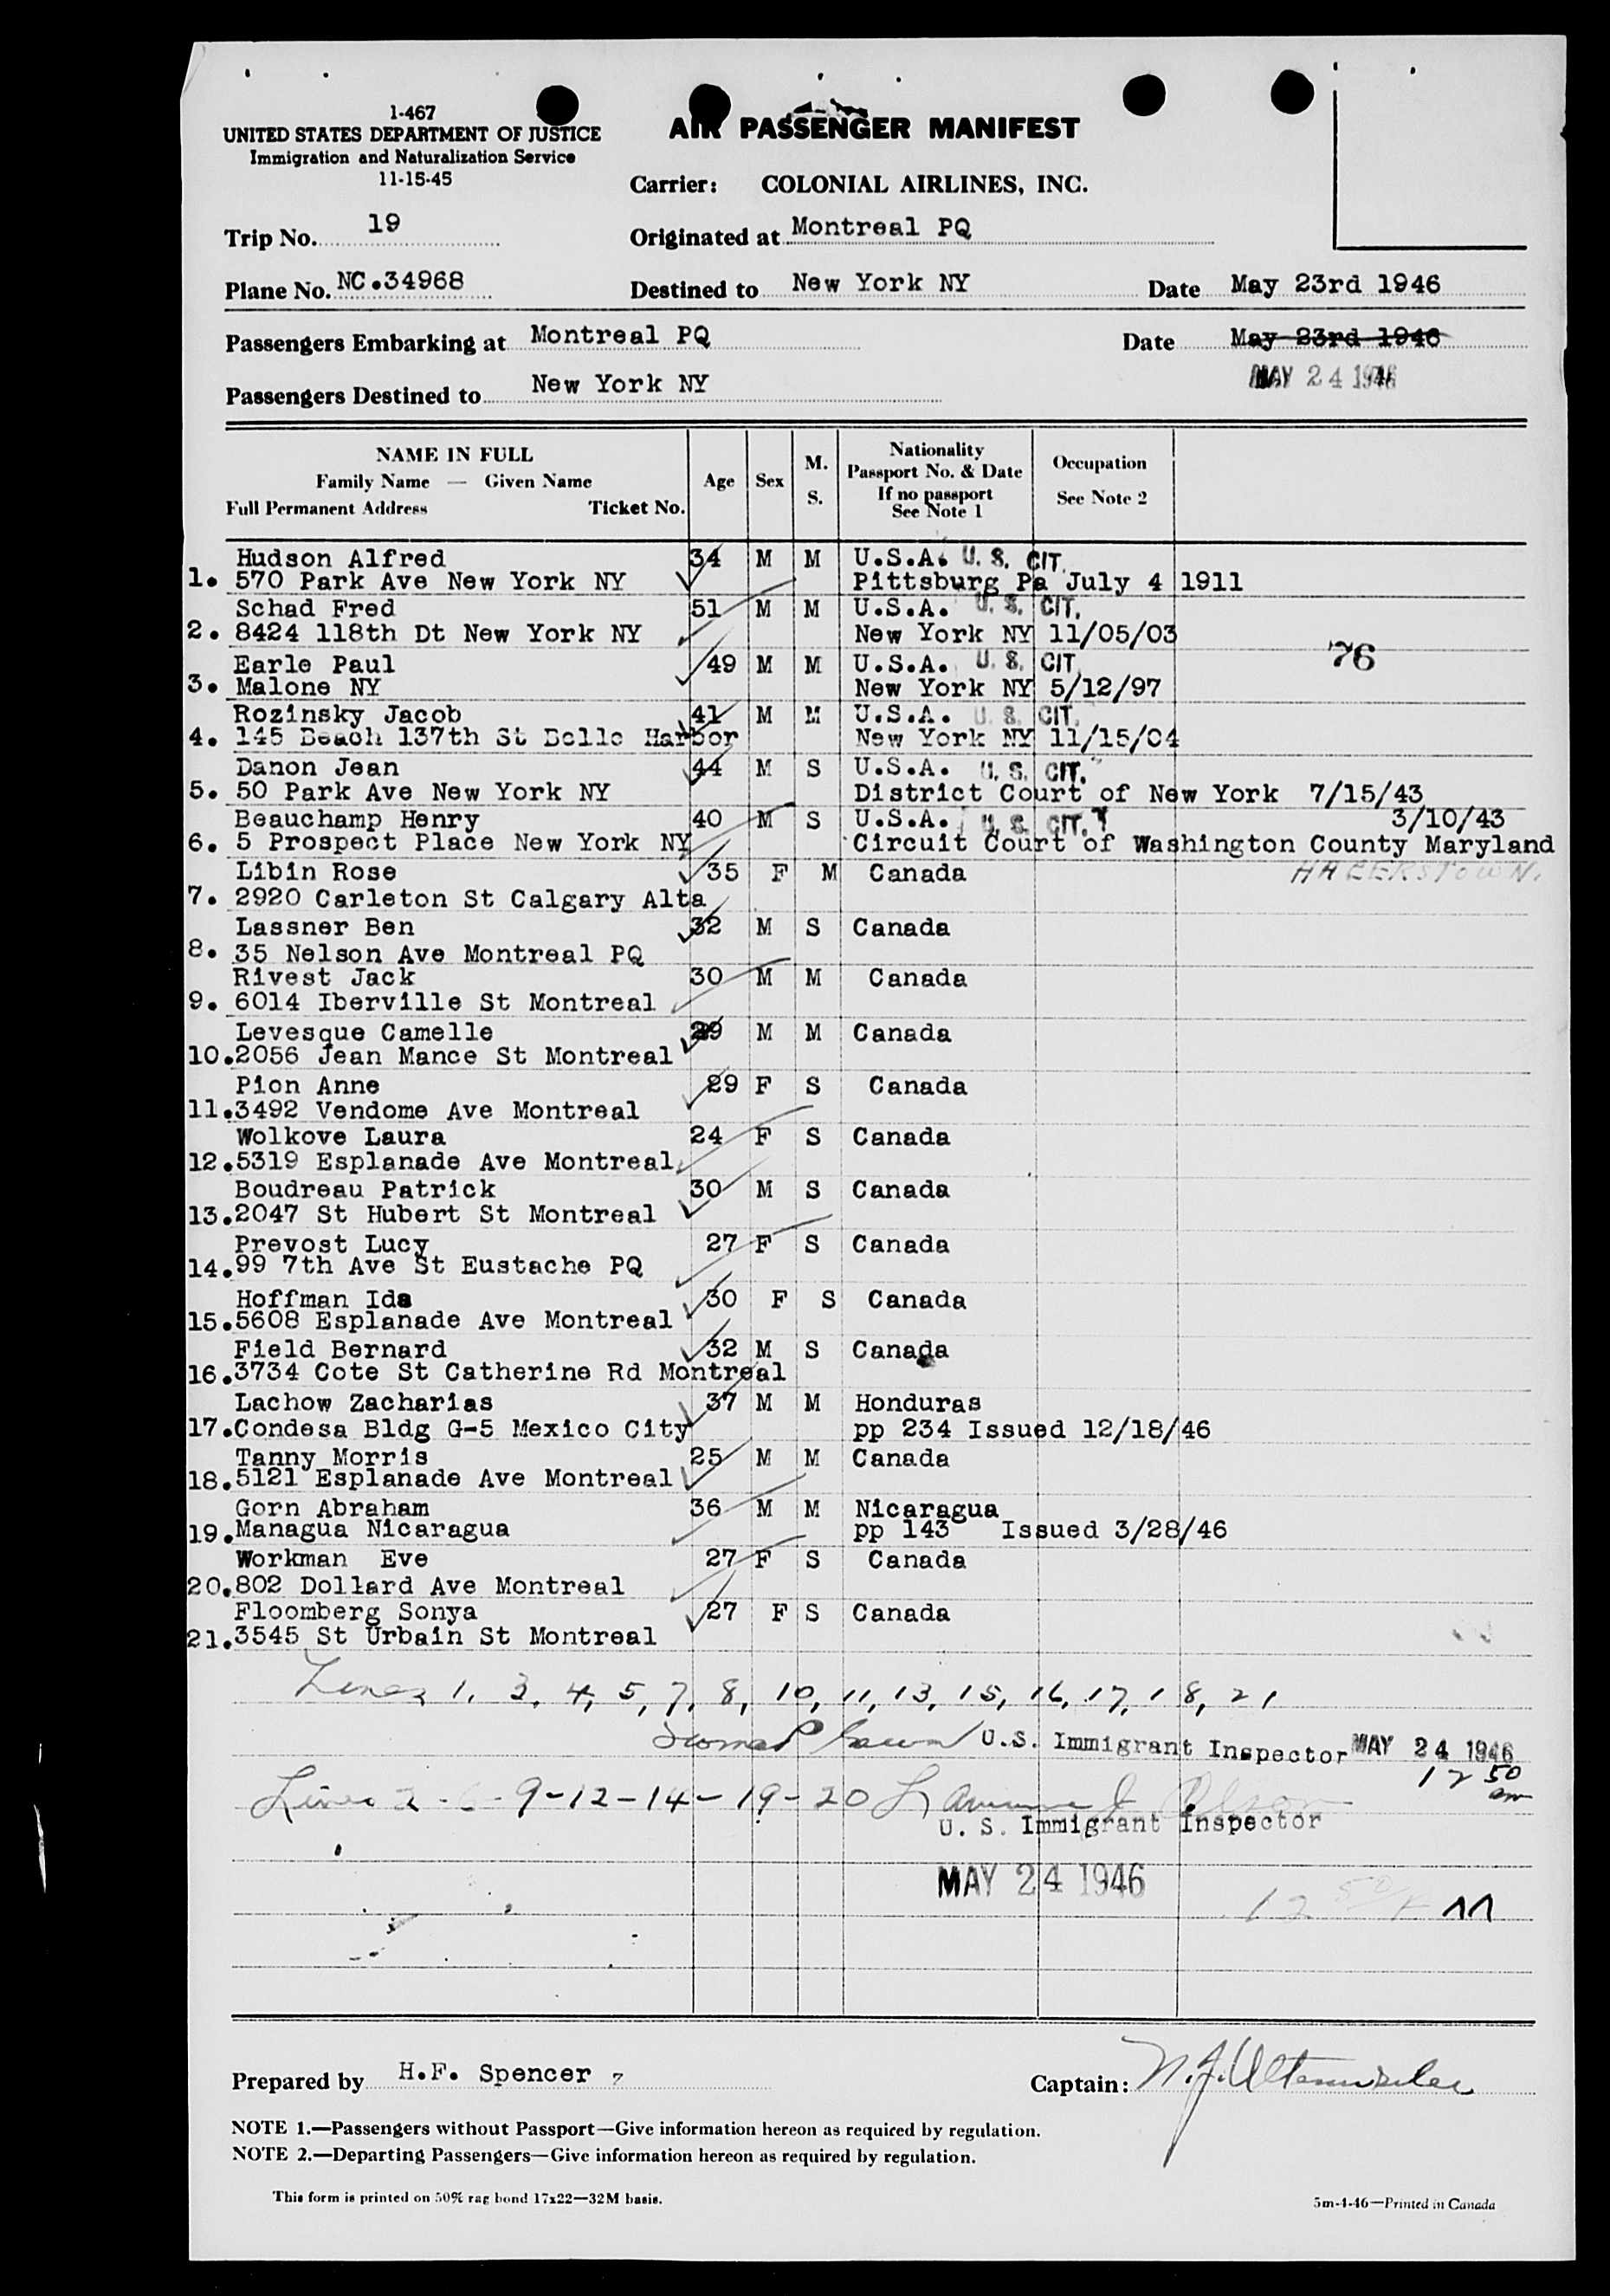 1-467
UNITED STATES DEPARTMENT OF JUSTICE
Immigration and Naturalization Service
11-15-45
AIR PASSENGER MANIFEST
Carrier: COLONIAL AIRLINES, INC.
Trip No. 19
Originated at Montreal PQ
Plane No. NC.34968
Destined to New York NY
Date May 23rd 1946
Passengers Embarking at Montreal PQ
Date May 23rd 1946
MAY 24 1946
Passengers Destined to New York NY
NAME IN FULL
Family Name — Given Name
Full Permanent Address Ticket No.
Age
Sex
M.
S.
Nationality
Passport No. & Date
If no passport
See Note 1
Occupation
See Note 2
Hudson Alfred 34 M M U.S.A. U. S. CIT.
1. 570 Park Ave New York NY Pittsburg Pa July 4 1911
Schad Fred 51 M M U.S.A. U. S. CIT.
2. 8424 118th Dt New York NY New York NY 11/05/03
76
Earle Paul 49 M M U.S.A. U. S. CIT
3. Malone NY New York NY 5/12/97
Rozinsky Jacob 41 M M U.S.A. U. S. CIT.
4. 145 Beach 137th St Belle Harbor New York NY 11/15/04
Danon Jean 44 M S U.S.A. U. S. CIT.
5. 50 Park Ave New York NY District Court of New York 7/15/43
Beauchamp Henry 40 M S U.S.A. U. S. CIT. 3/10/43
6. 5 Prospect Place New York NY Circuit Court of Washington County Maryland
Libin Rose 35 F M Canada HAGERSTOWN.
7. 2920 Carleton St Calgary Alta
Lassner Ben 32 M S Canada
8. 35 Nelson Ave Montreal PQ
Rivest Jack 30 M M Canada
9. 6014 Iberville St Montreal
Levesque Camelle 29 M M Canada
10. 2056 Jean Mance St Montreal
Pion Anne 29 F S Canada
11. 3492 Vendome Ave Montreal
Wolkove Laura 24 F S Canada
12. 5319 Esplanade Ave Montreal
Boudreau Patrick 30 M S Canada
13. 2047 St Hubert St Montreal
Prevost Lucy 27 F S Canada
14. 99 7th Ave St Eustache PQ
Hoffman Ida 30 F S Canada
15. 5608 Esplanade Ave Montreal
Field Bernard 32 M S Canada
16. 3734 Cote St Catherine Rd Montreal
Lachow Zacharias 37 M M Honduras
17. Condesa Bldg G-5 Mexico City pp 234 Issued 12/18/46
Tanny Morris 25 M M Canada
18. 5121 Esplanade Ave Montreal
Gorn Abraham 36 M M Nicaragua
19. Managua Nicaragua pp 143 Issued 3/28/46
Workman Eve 27 F S Canada
20. 802 Dollard Ave Montreal
Floomberg Sonya 27 F S Canada
21. 3545 St Urbain St Montreal
Lines 1, 3, 4, 5, 7, 8, 10, 11, 13, 15, 16, 17, 18, 21
U.S. Immigrant Inspector MAY 24 1946
12 50 am
Lines 2 - 6 - 9 - 12 - 14 - 19 - 20
U. S. Immigrant Inspector
MAY 24 1946
12 50 A M
Prepared by H.F. Spencer
Captain:
NOTE 1.—Passengers without Passport—Give information hereon as required by regulation.
NOTE 2.—Departing Passengers—Give information hereon as required by regulation.
This form is printed on 50% rag bond 17x22—32M basis.
5m-4-46—Printed in Canada